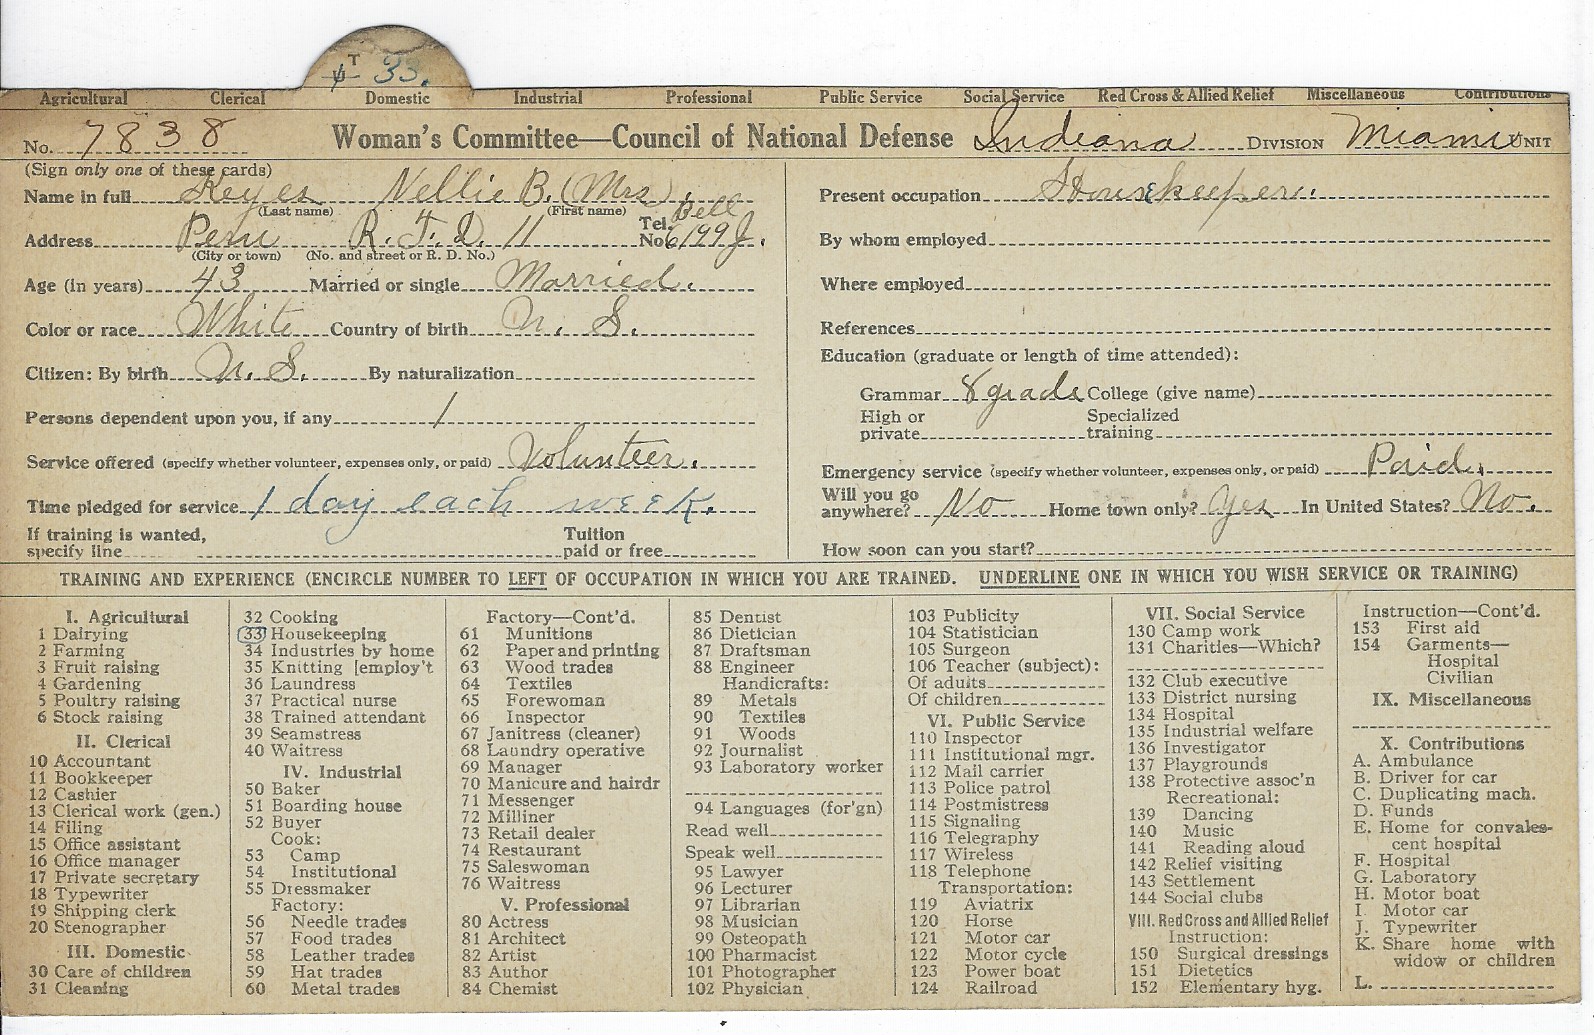 T
33.
Agricultural Clerical Domestic Industrial Professional Public Service Social Service Red Cross & Allied Relief Miscellaneous Contributions
No. 7838 Woman's Committee—Council of National Defense Indiana DIVISION Miami UNIT
(Sign only one of these cards)
Name in full Keyes Nellie B. (Mrs).
(Last name) (First name)
Address Peru R. F. D. 11 Tel. No. Bell 6199 J.
(City or town) (No. and street or R. D. No.)
Age (in years) 43 Married or single Married.
Color or race White Country of birth U. S.
Citizen: By birth U. S. By naturalization
Persons dependent upon you, if any 1
Service offered (specify whether volunteer, expenses only, or paid) Volunteer.
Time pledged for service 1 day each week.
If training is wanted, specify line Tuition paid or free
Present occupation Housekeeper.
By whom employed
Where employed
References
Education (graduate or length of time attended):
Grammar 8 grade College (give name)
High or private Specialized training
Emergency service (specify whether volunteer, expenses only, or paid) Paid.
Will you go anywhere? No Home town only? Yes In United States? No.
How soon can you start?
TRAINING AND EXPERIENCE (ENCIRCLE NUMBER TO LEFT OF OCCUPATION IN WHICH YOU ARE TRAINED. UNDERLINE ONE IN WHICH YOU WISH SERVICE OR TRAINING)
I. Agricultural
1 Dairying
2 Farming
3 Fruit raising
4 Gardening
5 Poultry raising
6 Stock raising
II. Clerical
10 Accountant
11 Bookkeeper
12 Cashier
13 Clerical work (gen.)
14 Filing
15 Office assistant
16 Office manager
17 Private secretary
18 Typewriter
19 Shipping clerk
20 Stenographer
III. Domestic
30 Care of children
31 Cleaning
32 Cooking
33 Housekeeping
34 Industries by home
35 Knitting [employ't
36 Laundress
37 Practical nurse
38 Trained attendant
39 Seamstress
40 Waitress
IV. Industrial
50 Baker
51 Boarding house
52 Buyer
Cook:
53 Camp
54 Institutional
55 Dressmaker
Factory:
56 Needle trades
57 Food trades
58 Leather trades
59 Hat trades
60 Metal trades
Factory—Cont'd.
61 Munitions
62 Paper and printing
63 Wood trades
64 Textiles
65 Forewoman
66 Inspector
67 Janitress (cleaner)
68 Laundry operative
69 Manager
70 Manicure and hairdr
71 Messenger
72 Milliner
73 Retail dealer
74 Restaurant
75 Saleswoman
76 Waitress
V. Professional
80 Actress
81 Architect
82 Artist
83 Author
84 Chemist
85 Dentist
86 Dietician
87 Draftsman
88 Engineer
Handicrafts:
89 Metals
90 Textiles
91 Woods
92 Journalist
93 Laboratory worker
94 Languages (for'gn)
Read well
Speak well
95 Lawyer
96 Lecturer
97 Librarian
98 Musician
99 Osteopath
100 Pharmacist
101 Photographer
102 Physician
103 Publicity
104 Statistician
105 Surgeon
106 Teacher (subject):
Of adults
Of children
VI. Public Service
110 Inspector
111 Institutional mgr.
112 Mail carrier
113 Police patrol
114 Postmistress
115 Signaling
116 Telegraphy
117 Wireless
118 Telephone
Transportation:
119 Aviatrix
120 Horse
121 Motor car
122 Motor cycle
123 Power boat
124 Railroad
VII. Social Service
130 Camp work
131 Charities—Which?
132 Club executive
133 District nursing
134 Hospital
135 Industrial welfare
136 Investigator
137 Playgrounds
138 Protective assoc'n
Recreational:
139 Dancing
140 Music
141 Reading aloud
142 Relief visiting
143 Settlement
144 Social clubs
VIII. Red Cross and Allied Relief
Instruction:
150 Surgical dressings
151 Dietetics
152 Elementary hyg.
Instruction—Cont'd.
153 First aid
154 Garments—
Hospital
Civilian
IX. Miscellaneous
X. Contributions
A. Ambulance
B. Driver for car
C. Duplicating mach.
D. Funds
E. Home for convales-
cent hospital
F. Hospital
G. Laboratory
H. Motor boat
I. Motor car
J. Typewriter
K. Share home with
widow or children
L.